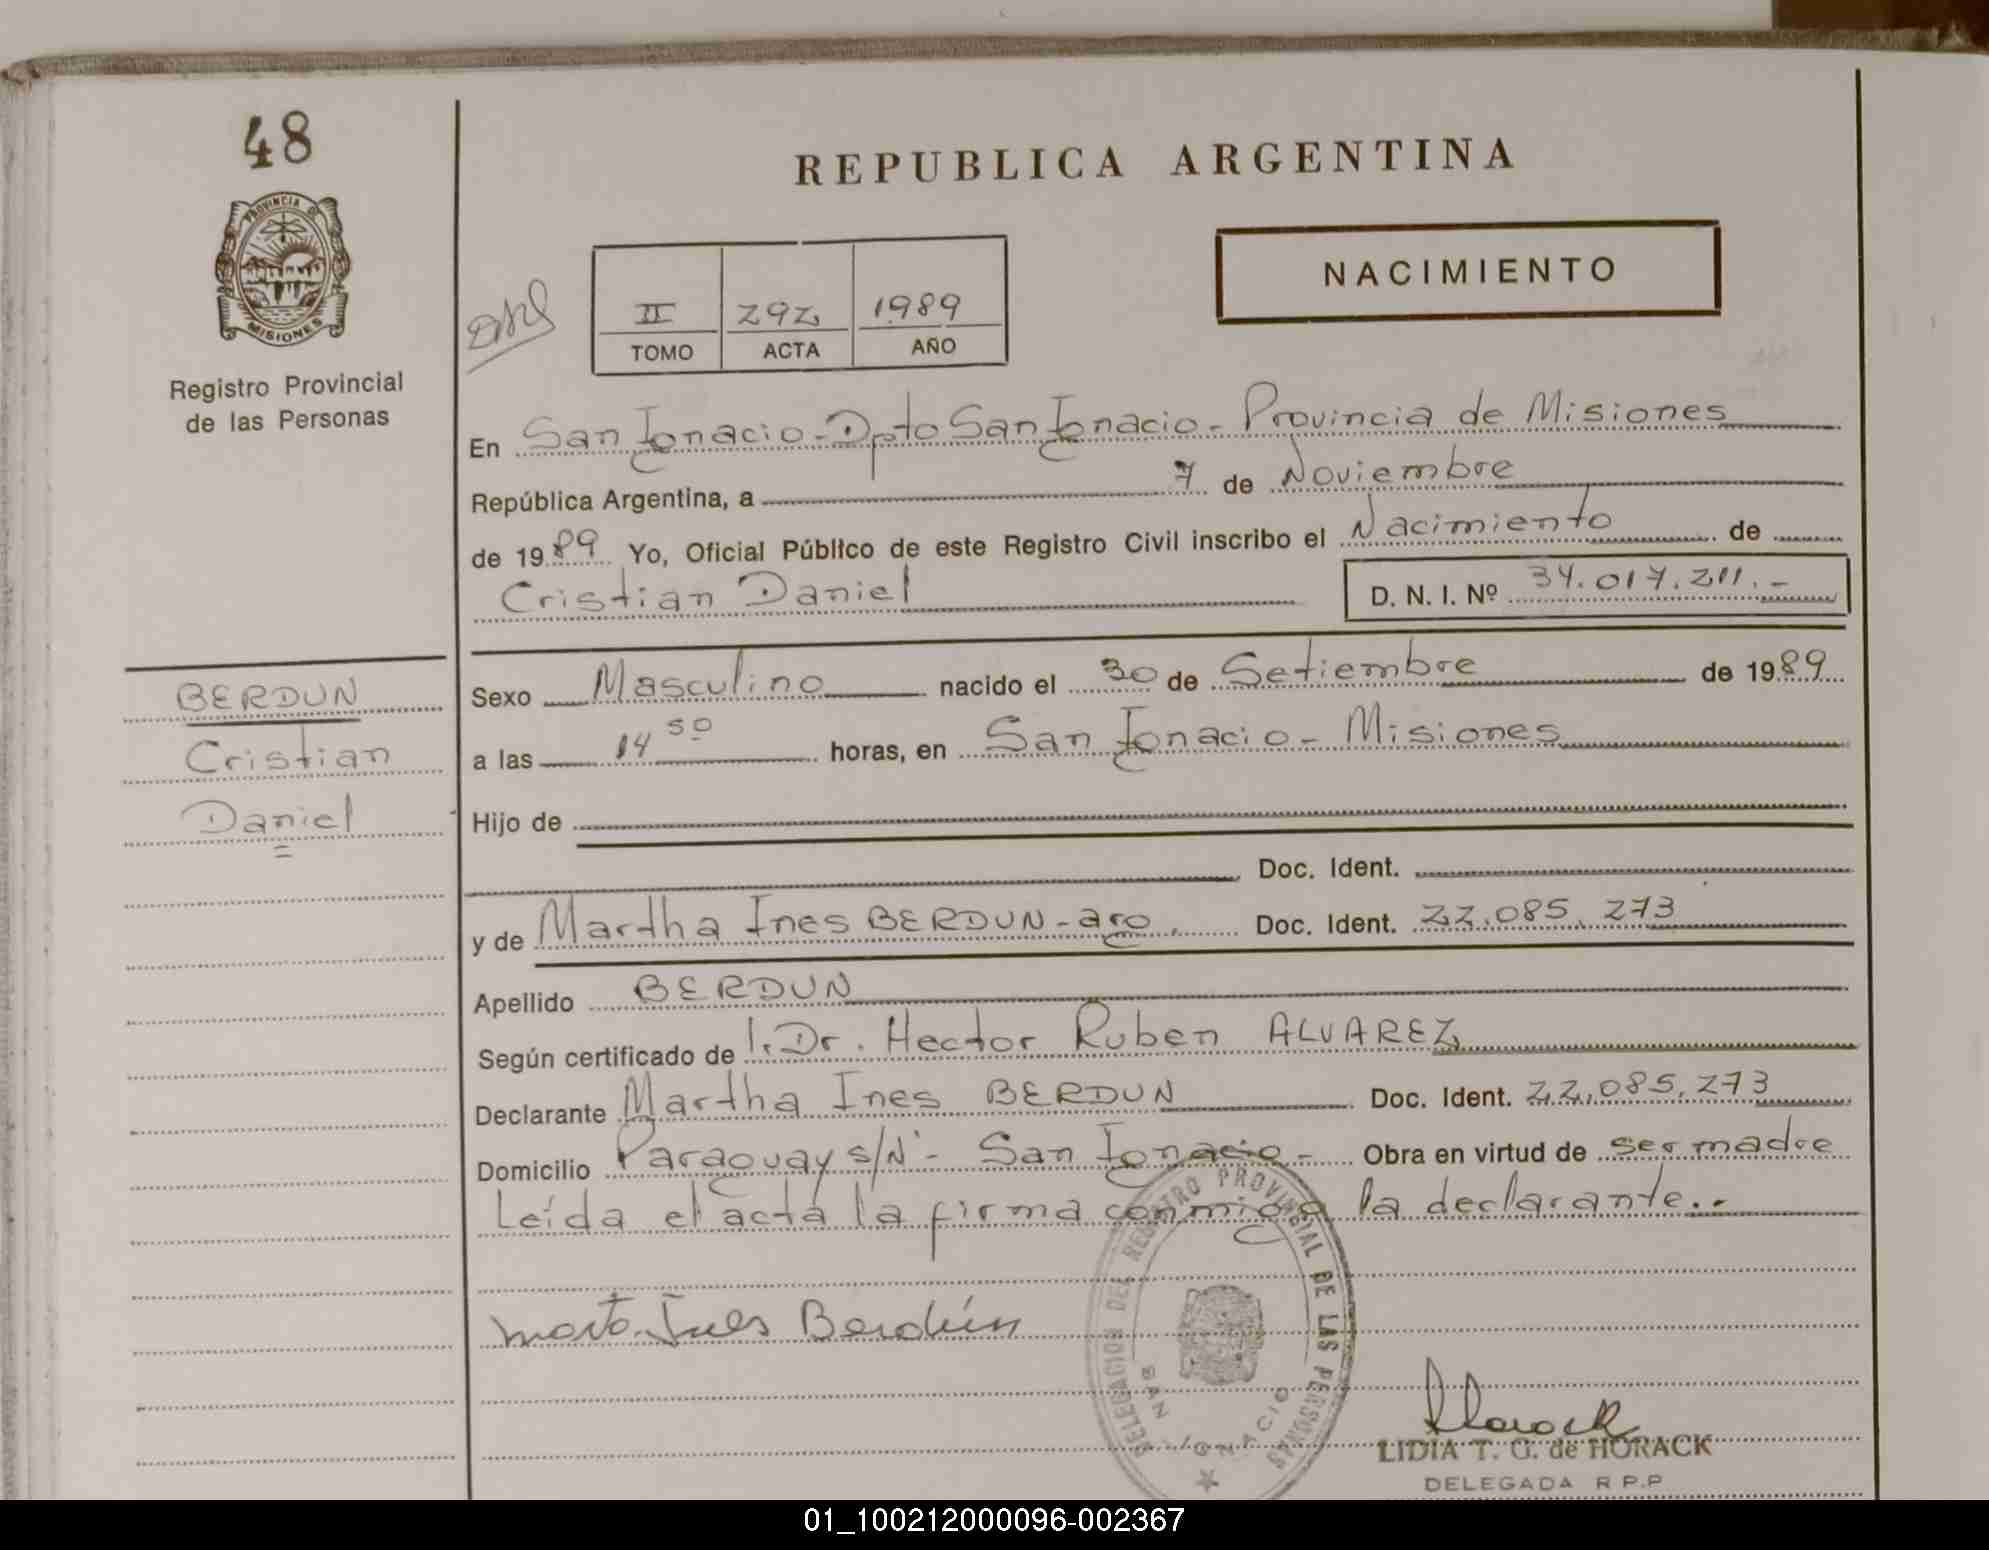 48
PROVINCIA DE
MISIONES
Registro Provincial
de las Personas
REPUBLICA ARGENTINA
NACIMIENTO
II 292 1989
TOMO ACTA AÑO
En San Ignacio - Dpto San Ignacio - Provincia de Misiones
República Argentina, a 7 de Noviembre
de 1989 Yo, Oficial Público de este Registro Civil inscribo el Nacimiento de
Cristian Daniel D. N. I. Nº 34.017.211.-
BERDUN
Cristian
Daniel
Sexo Masculino nacido el 30 de Setiembre de 1989
a las 14 50 horas, en San Ignacio - Misiones
Hijo de
Doc. Ident.
y de Martha Ines BERDUN - arg. Doc. Ident. 22.085.273
Apellido BERDUN
Según certificado de 1. Dr. Hector Ruben ALVAREZ
Declarante Martha Ines BERDUN Doc. Ident. 22.085.273
Domicilio Paraguay s/Nº - San Ignacio - Obra en virtud de ser madre
Leída el acta la firma conmigo la declarante.-
Ines Berdún
DELEGACION DEL REGISTRO PROVINCIAL DE LAS PERSONAS
SAN IGNACIO
LIDIA T. G. de HORACK
DELEGADA R.P.P
01_100212000096-002367